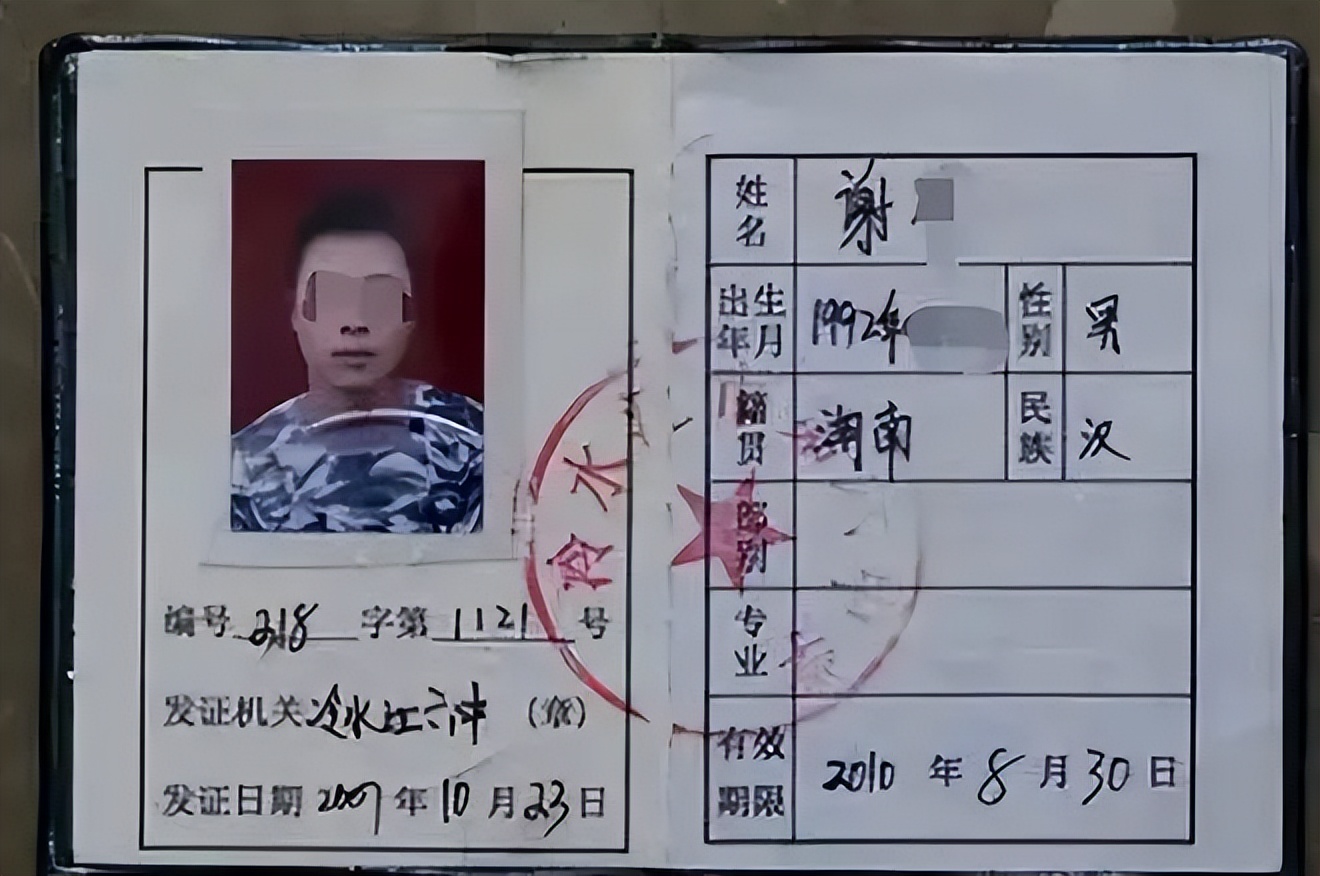 编号 218 字第 1121 号
发证机关 冷水江六中 (章)
发证日期 2007 年 10 月 23 日
姓名 谢
出生年月 1992年 性别 男
籍贯 湖南 民族 汉
部别
专业
有效期限 2010 年 8 月 30 日
冷水